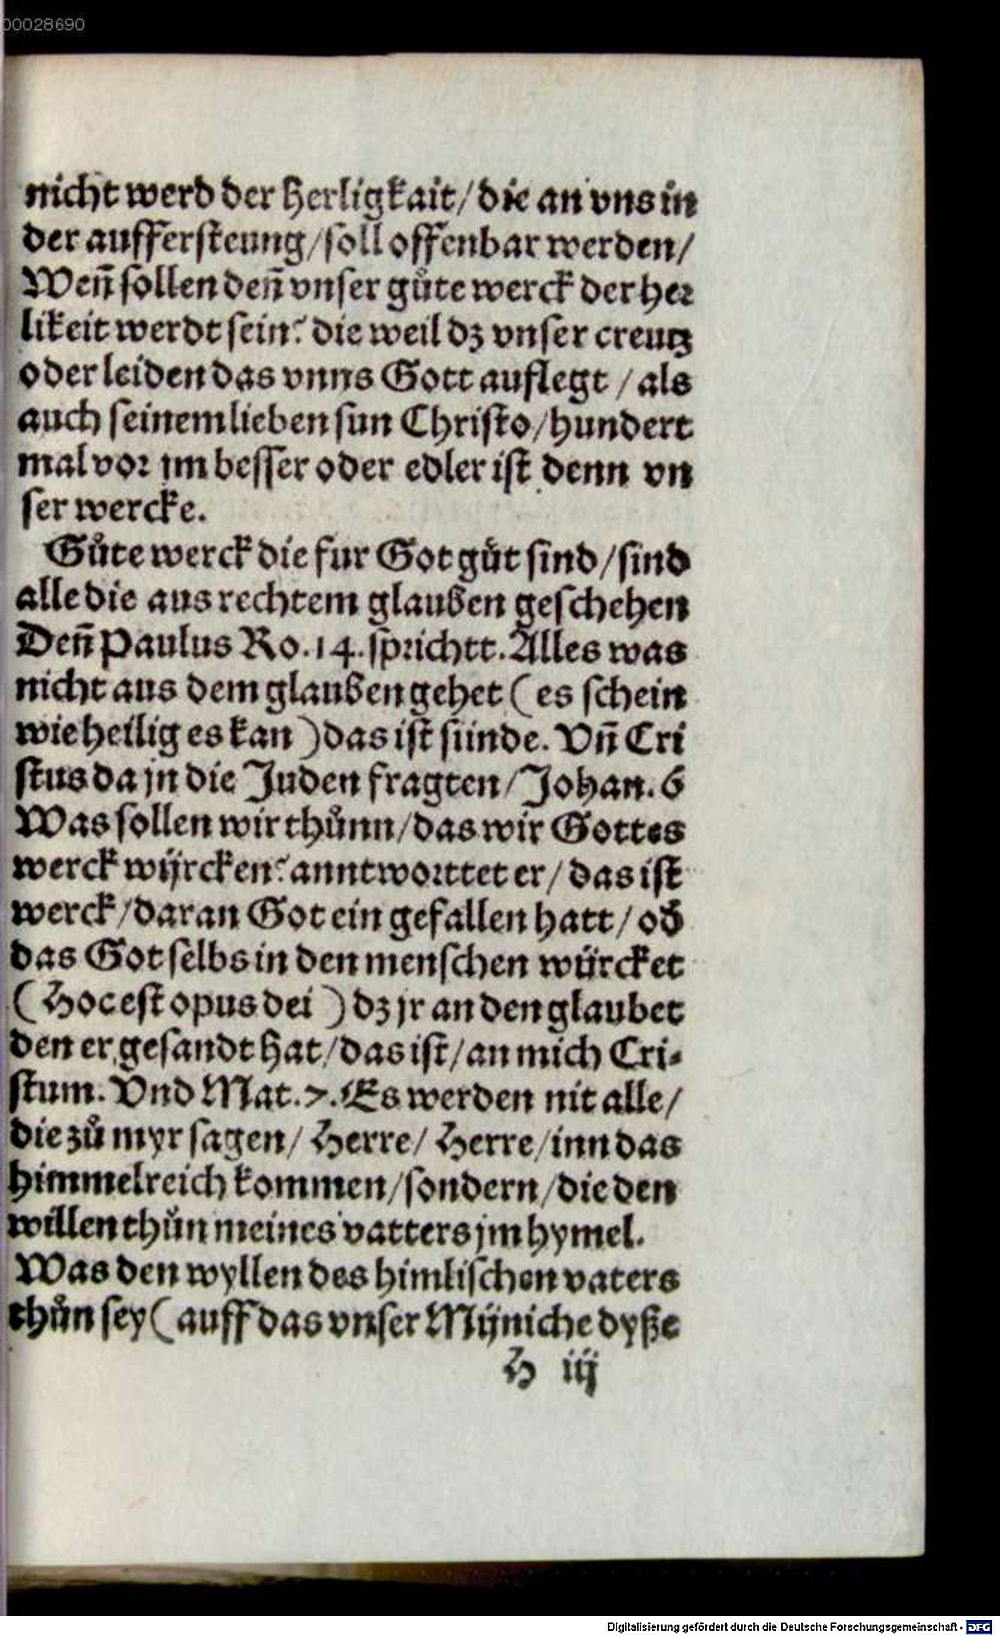 00028690
nicht werd der Herligkait/ die an vns in
der auffersteung/ soll offenbar werden/
Weñ sollen deñ vnser gůte werck der her
likeit werdt sein? die weil dz vnser creutz
oder leiden das vnns Gott auflegt / als
auch seinem lieben sun Christo/ hundert
mal vor jm besser oder edler ist denn vn
ser wercke.
Gůte werck die fur Got gůt sind/ sind
alle die aus rechtem glauben geschehen
Deñ Paulus Ro. 14. sprichtt. Alles was
nicht aus dem glauben gehet ( es schein
wie heilig es kan ) das ist sünde. Vñ Cri
stus da jn die Juden fragten/ Johan. 6
Was sollen wir thůnn/ das wir Gottes
werck wÿrcken? anntworttet er/ das ist
werck/ daran Got ein gefallen hatt/ oď
das Got selbs in den menschen würcket
( Hoc est opus dei ) dz jr an den glaubet
den er gesandt hat/ das ist/ an mich Cri-
stum. Vnd Mat. 7. Es werden nit alle/
die zů myr sagen/ Herre/ Herre/ inn das
himmelreich kommen/ sondern/ die den
willen thůn meines vatters jm hymel.
Was den wyllen des himlischen vaters
thůn sey ( auff das vnser Mÿniche dyße
H iij
Digitalisierung gefördert durch die Deutsche Forschungsgemeinschaft - DFG